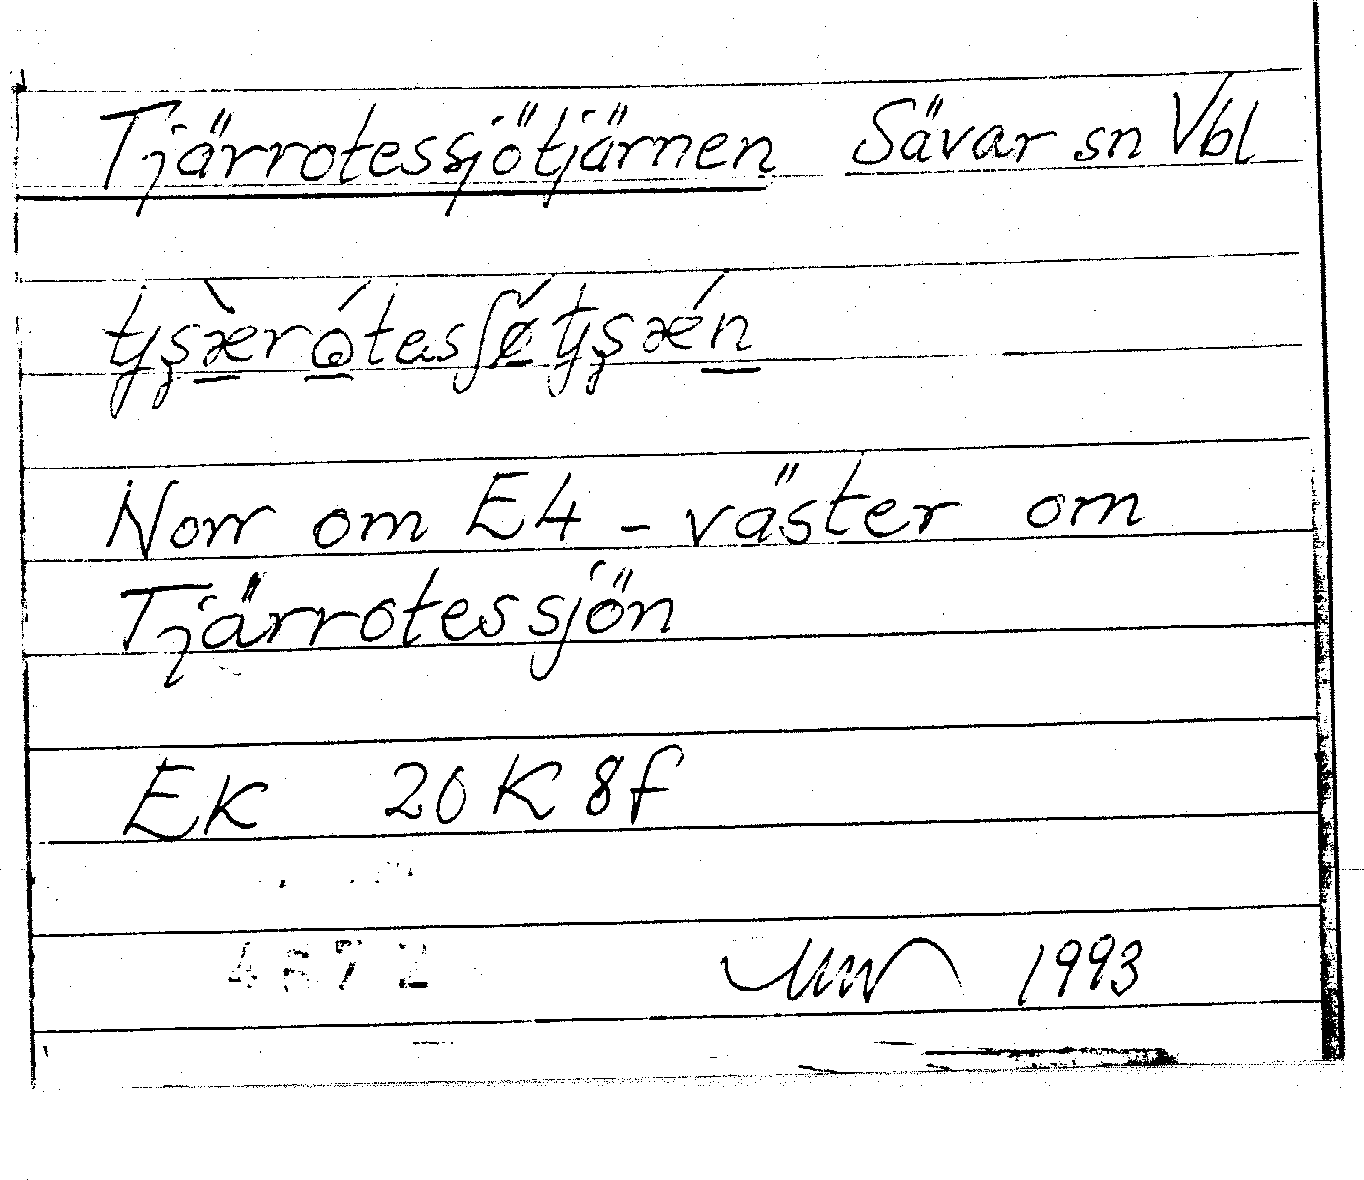 Tjärrotessjötjärnen Sävar sn Vbl
Norr om E4 - väster om
Tjärrotessjön
EK 20K 8f
4672 1993